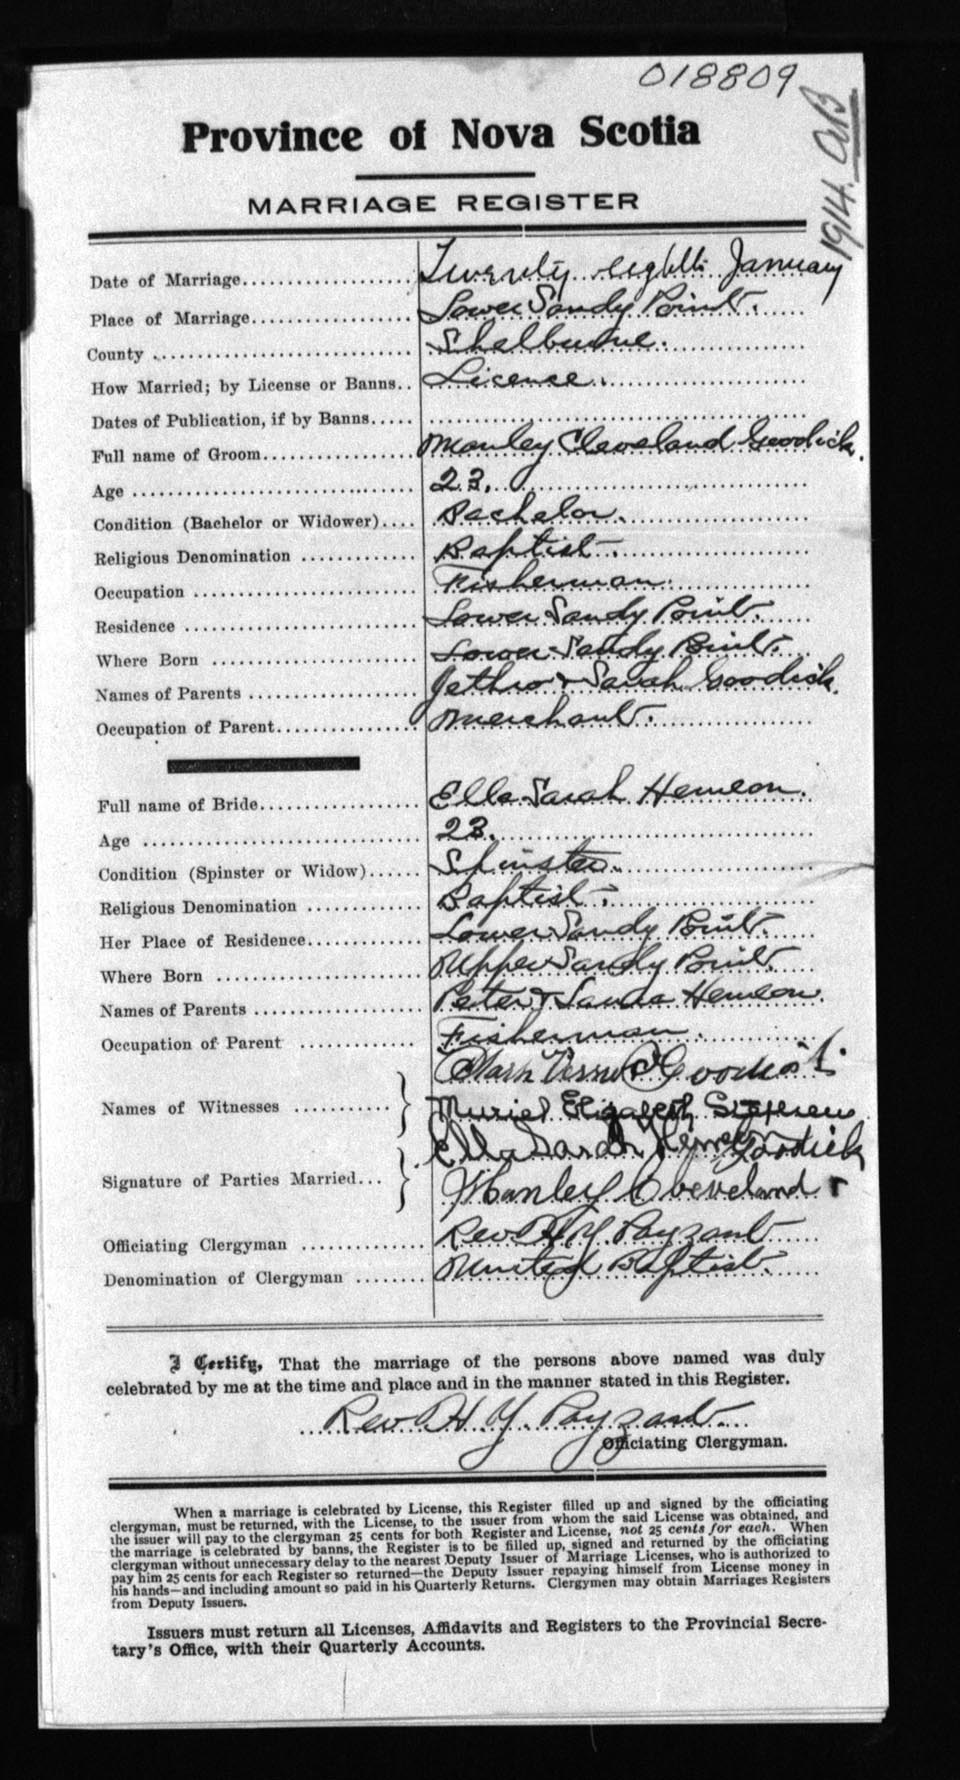 018809
1914. AB
Province of Nova Scotia
MARRIAGE REGISTER
Date of Marriage Twenty eighth January
Place of Marriage Lower Sandy Point.
County Shelburne.
How Married; by License or Banns License.
Dates of Publication, if by Banns
Full name of Groom Manley Cleveland Goodick.
Age 23.
Condition (Bachelor or Widower) Bachelor.
Religious Denomination Baptist.
Occupation Fisherman.
Residence Lower Sandy Point.
Where Born Lower Sandy Point.
Names of Parents Jethro & Sarah Goodick.
Occupation of Parent Merchant.
Full name of Bride Ella Sarah Hemeon.
Age 23.
Condition (Spinster or Widow) Spinster.
Religious Denomination Baptist.
Her Place of Residence Lower Sandy Point.
Where Born Upper Sandy Point.
Names of Parents Peter & Hemeon.
Occupation of Parent Fisherman.
Names of Witnesses
Muriel Elizabeth
Ella Sarah Goodick
Signature of Parties Married Manley Cleveland
Officiating Clergyman Rev H Y Payzant
Denomination of Clergyman United Baptist.
I Certify, That the marriage of the persons above named was duly
celebrated by me at the time and place and in the manner stated in this Register.
Rev H Y. Payzant
Officiating Clergyman.
When a marriage is celebrated by License, this Register filled up and signed by the officiating
clergyman, must be returned, with the License, to the issuer from whom the said License was obtained, and
the issuer will pay to the clergyman 25 cents for both Register and License, not 25 cents for each. When
the marriage is celebrated by banns, the Register is to be filled up, signed and returned by the officiating
clergyman without unnecessary delay to the nearest Deputy Issuer of Marriage Licenses, who is authorized to
pay him 25 cents for each Register so returned—the Deputy Issuer repaying himself from License money in
his hands—and including amount so paid in his Quarterly Returns. Clergymen may obtain Marriages Registers
from Deputy Issuers.
Issuers must return all Licenses, Affidavits and Registers to the Provincial Secre-
tary's Office, with their Quarterly Accounts.